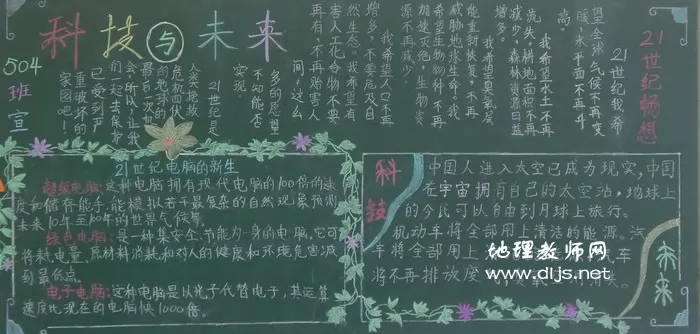 科技与未来
504
班
宣
21世纪畅想
21世纪我希
望全球气候不再变
暖,水平面不再升
高。
我希望水土不再
流失,耕地面积不再
减少,森林资源日益
增多。
我希望臭氧层
能重新恢复,不再
威胁地球生命;我
希望生物物种不再
加速灭绝,生物资
源不再减少。
我希望人口不再
增多,不要危及自
然生态。我希望有
害人工化合物不要
再有,不再贻害人
间。这么
多的愿望
不知能否
实现。
21世纪是
人类挽救
危机四伏
的地球的
最后一次机
会,所以,让我
们一起去保护
已受到严
重破坏的
家园吧!
21世纪电脑的新生
超级电脑:这种电脑拥有现代电脑的100倍的速
度和储存能手,能模拟若干最复杂的自然现象预测
未来10年至100年的世界气候等。
绿色电脑:是一种集安全、节能为一身的电脑,它可
将耗电量、原材料消耗和对人的健康和环境危害减
到最低点。
电子电脑:这种电脑是以光子代替电子,其运算
速度比现在的电脑快1000倍。
科技
中国人进入太空已成为现实,中国
在宇宙拥有自己的太空站,地球上
的今民可以自由到月球上旅行。
机动车将全部用上清洁的能源。汽
车将全部用上
将不再排放废
消失。
未来
地理教师网
www.dljs.net